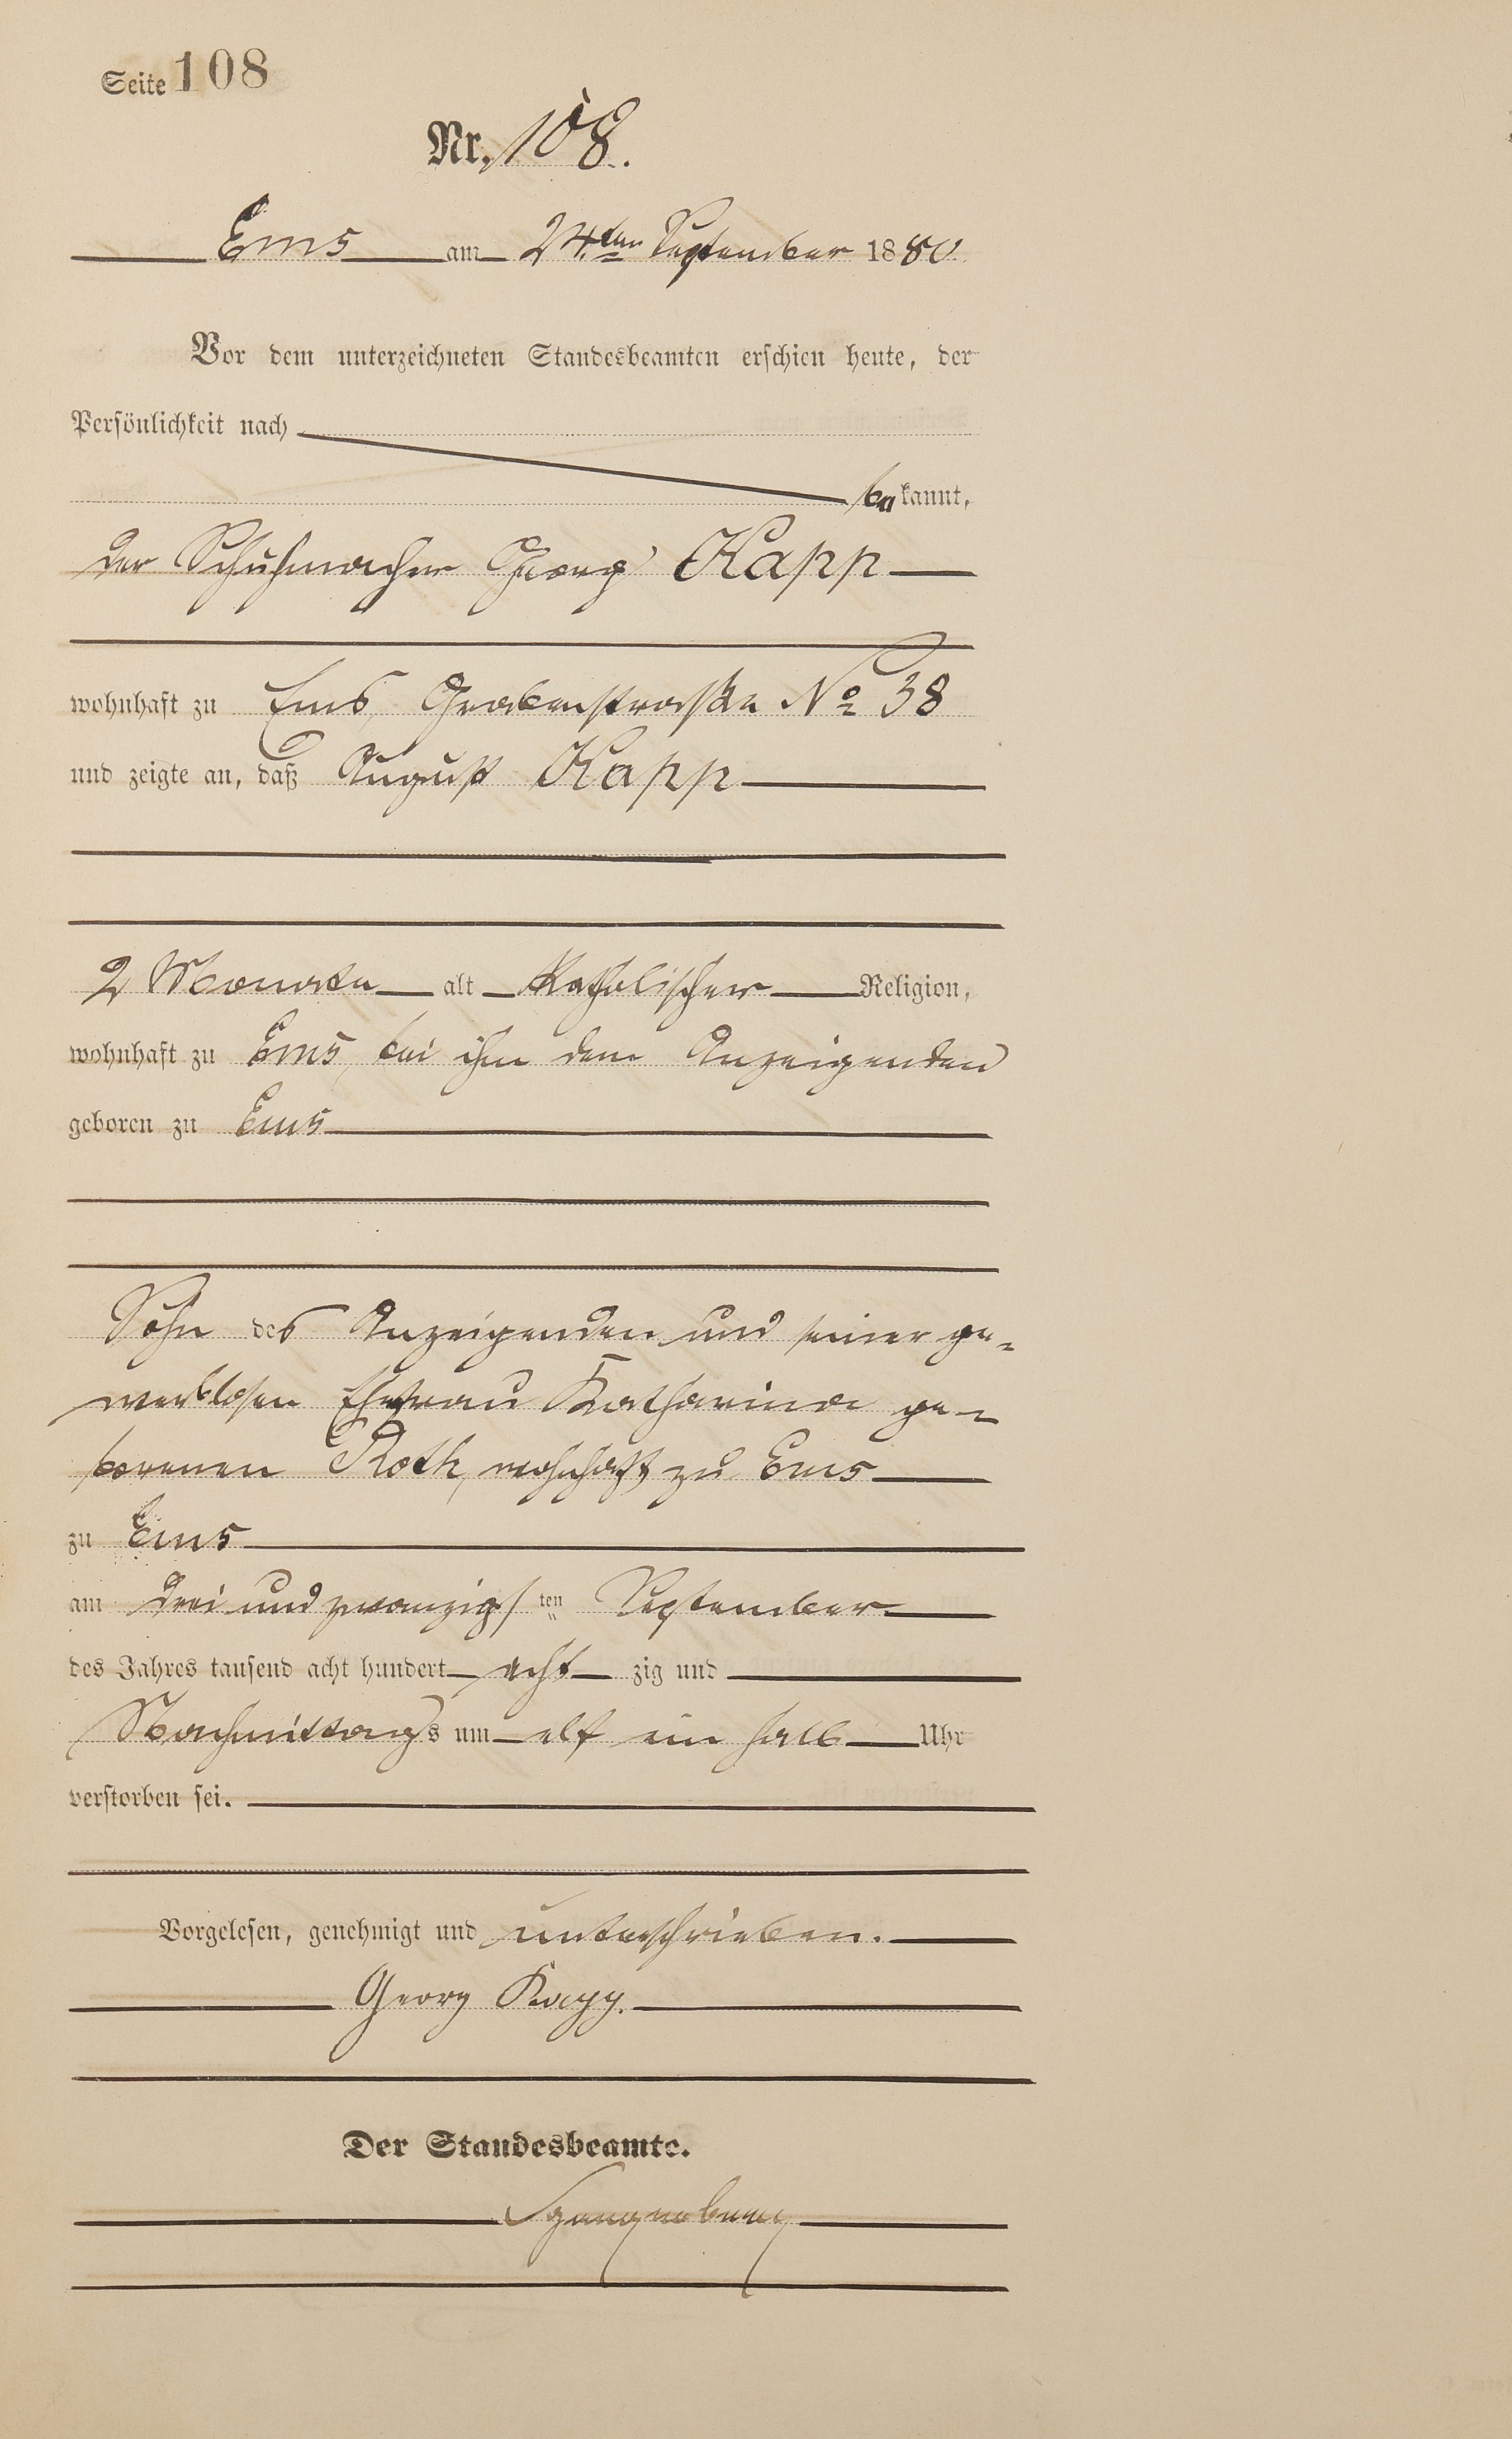 Seite 108
Nr. 108.
Ems am 24.ten September 1880.
Vor dem unterzeichneten Standesbeamten erschien heute, der
Persönlichkeit nach
bekannt,
der Schuhmacher Georg Kapp
wohnhaft zu Ems, Grabenstraße No 38
und zeigte an, daß August Kapp
2 Monate alt katholischer Religion,
wohnhaft zu Ems, bei ihm dem Anzeigenden
geboren zu Ems
Sohn des Anzeigenden und seiner ge-
werblosen Ehefrau Katharina ge-
borenen Roth, wohnhaft zu Ems
zu Ems
am drei und zwanzigsten September
des Jahres tausend acht hundert acht zig und
Nachmittags um elf ein halb Uhr
verstorben sei.
Vorgelesen, genehmigt und unterschrieben.
Georg Kapp.
Der Standesbeamte.
Spangenberg